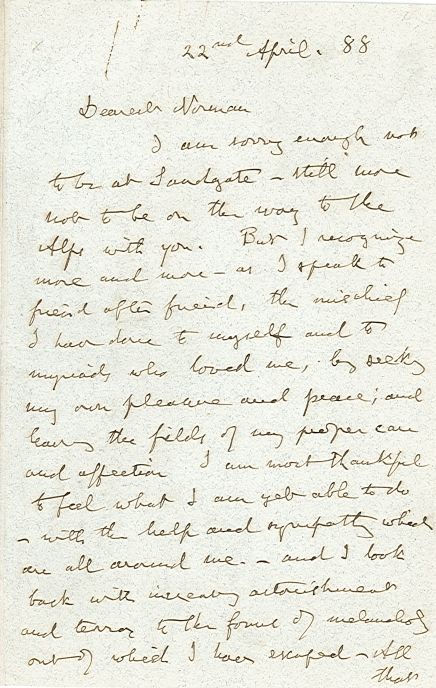 22nd April. 88
Dearest Norman
I am sorry enough not
to be at Sandgate - still more
not to be on the way to the
Alps with you. But I recognize
more and more - as I speak to
friend after friend, the mischief
I have done to myself and to
myriads who loved me, by seeking
my own pleasure and peace; and
leaving the fields of my proper care
and affection I am most thankful
to feel what I am yet able to do
- with the help and sympathy which
are all around me. - and I look
back with increasing astonishment
and terror to the forms of melancholy
out of which I have escaped - All
that